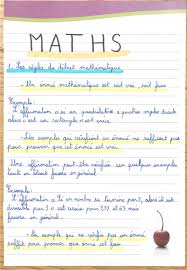 MATHS
1. Les règles de débat mathématique
- Un énoncé mathématique est soit vrai, soit faux
Exemple :
L'affirmation « si un quadrilatère a quatre angles droits
alors c'est un rectangle » est vraie.
- Des exemples qui vérifient un énoncé ne suffisent pas
pour prouver que cet énoncé est vrai.
Une affirmation peut être vérifiée sur quelques exemples
tout en étant fausse en général.
Exemple :
L'affirmation « Si un nombre se termine par 3, alors il est
divisible par 3 » est vraie pour 3, 33 et 63 mais
fausse en général.
- Un exemple qui ne vérifie pas un énoncé
suffit pour prouver que cet énoncé est faux.